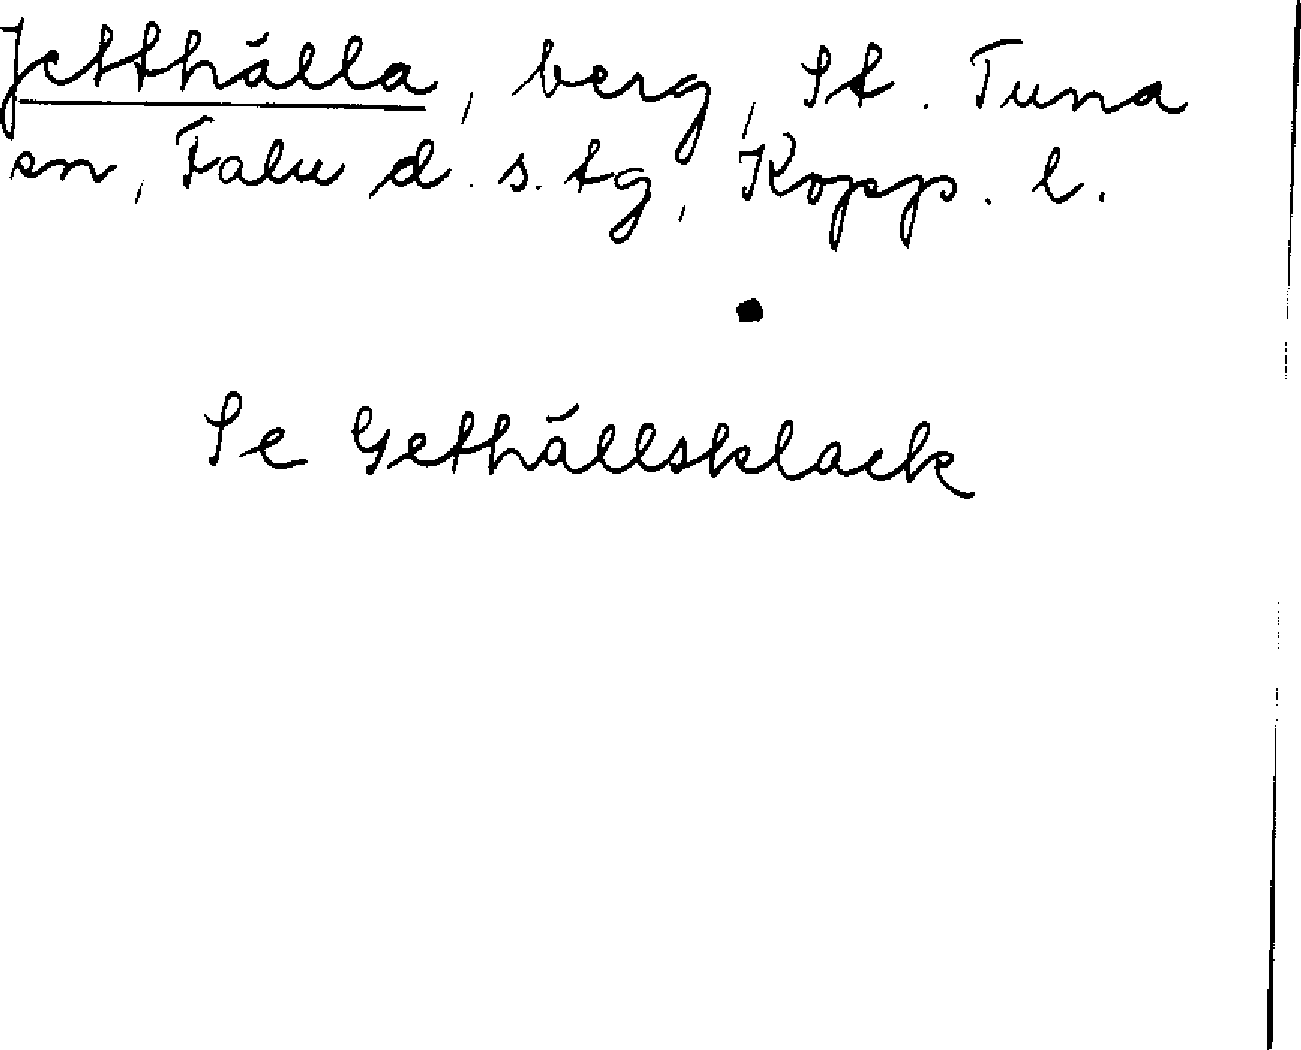 Jetthälla, berg, St. Tuna
sn, Falu d. s. tg, Kopp. l.
Se Gethällsklack